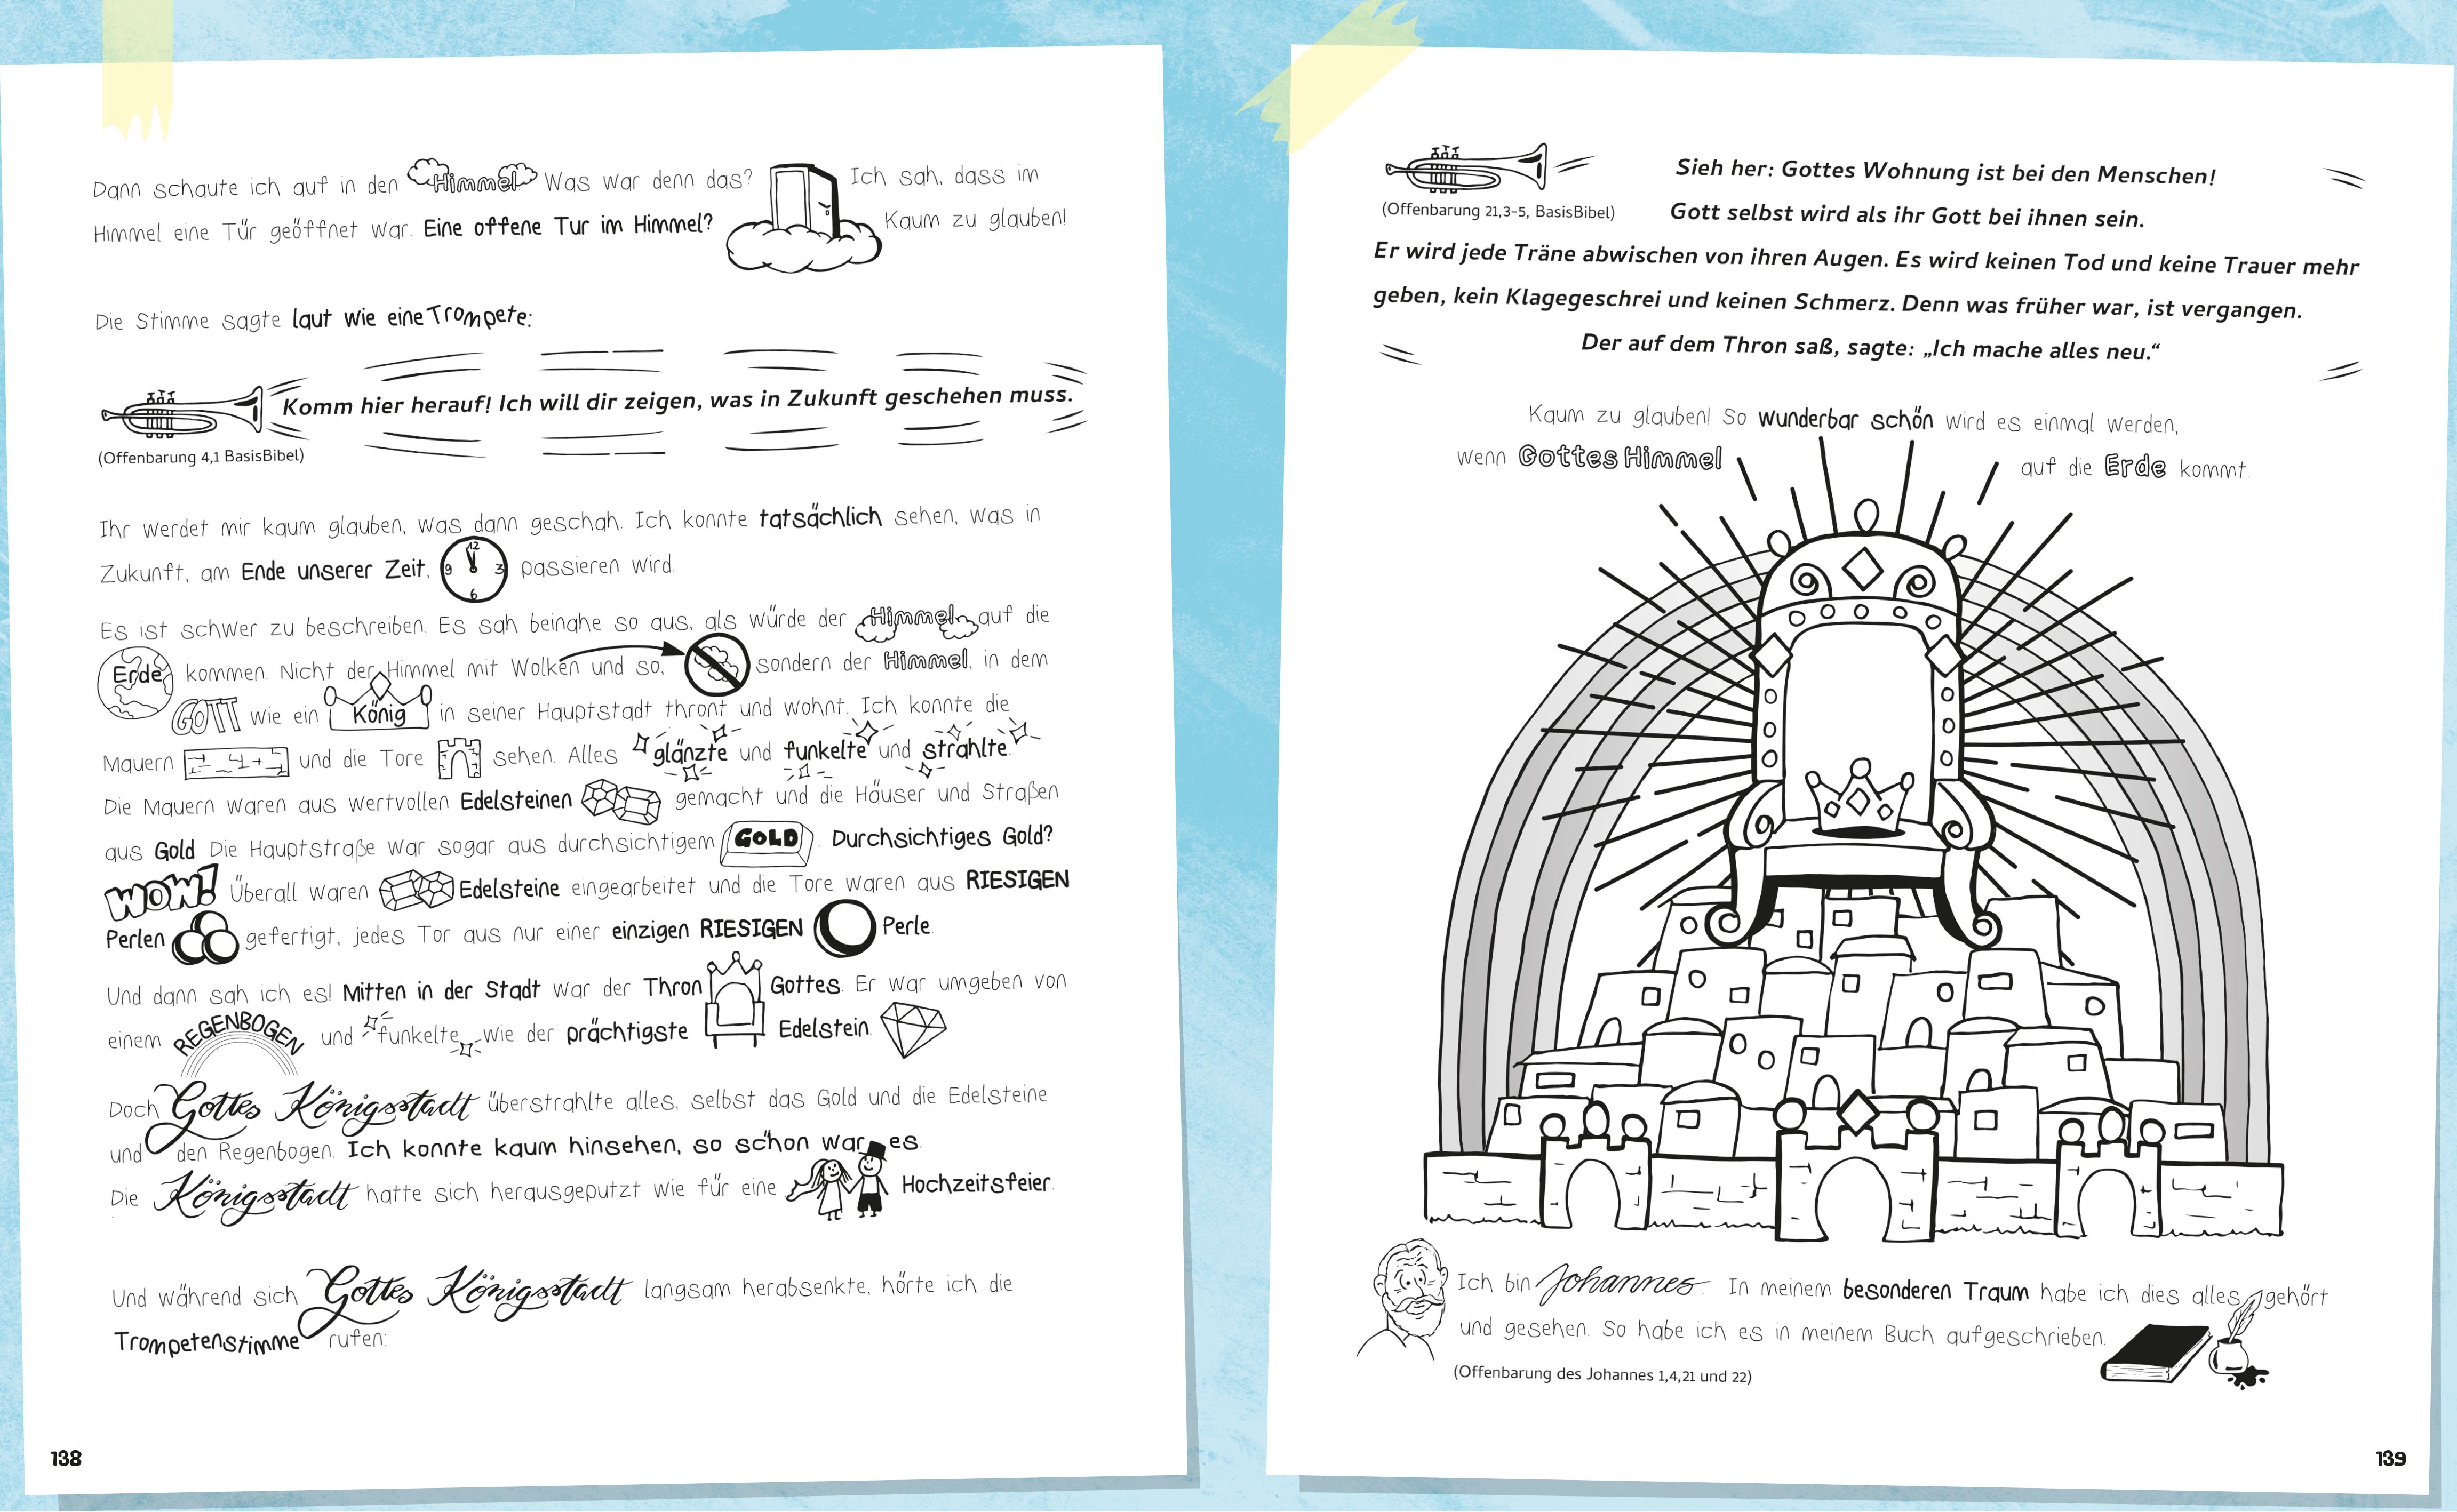 Dann schaute ich auf in den Himmel Was war denn das? Ich sah, dass im
Himmel eine Tür geöffnet war. Eine offene Tur im Himmel? Kaum zu glauben!
Die Stimme sagte laut wie eine Trompete:
Komm hier herauf! Ich will dir zeigen, was in Zukunft geschehen muss.
(Offenbarung 4,1 BasisBibel)
Ihr werdet mir kaum glauben, was dann geschah. Ich konnte tatsächlich sehen, was in
Zukunft, am Ende unserer Zeit, 12 3 6 9 passieren wird.
Es ist schwer zu beschreiben. Es sah beinahe so aus, als würde der Himmel auf die
Erde kommen. Nicht der Himmel mit Wolken und so, sondern der Himmel, in dem
GOTT wie ein König in seiner Hauptstadt thront und wohnt. Ich konnte die
Mauern und die Tore sehen. Alles glänzte und funkelte und strahlte.
Die Mauern waren aus wertvollen Edelsteinen gemacht und die Häuser und Straßen
aus Gold. Die Hauptstraße war sogar aus durchsichtigem GOLD. Durchsichtiges Gold?
WOW! Überall waren Edelsteine eingearbeitet und die Tore waren aus RIESIGEN
Perlen gefertigt, jedes Tor aus nur einer einzigen RIESIGEN Perle.
Und dann sah ich es! Mitten in der Stadt war der Thron Gottes. Er war umgeben von
einem REGENBOGEN und funkelte wie der prächtigste Edelstein.
Doch Gottes Königsstadt überstrahlte alles, selbst das Gold und die Edelsteine
und den Regenbogen. Ich konnte kaum hinsehen, so schon war es.
Die Königsstadt hatte sich herausgeputzt wie für eine Hochzeitsfeier.
Und während sich Gottes Königsstadt langsam herabsenkte, hörte ich die
Trompetenstimme rufen:
138
Sieh her: Gottes Wohnung ist bei den Menschen!
(Offenbarung 21,3-5, BasisBibel) Gott selbst wird als ihr Gott bei ihnen sein.
Er wird jede Träne abwischen von ihren Augen. Es wird keinen Tod und keine Trauer mehr
geben, kein Klagegeschrei und keinen Schmerz. Denn was früher war, ist vergangen.
Der auf dem Thron saß, sagte: „Ich mache alles neu.“
Kaum zu glauben! So wunderbar schön wird es einmal werden,
wenn Gottes Himmel auf die Erde kommt.
Ich bin Johannes. In meinem besonderen Traum habe ich dies alles gehört
und gesehen. So habe ich es in meinem Buch aufgeschrieben.
(Offenbarung des Johannes 1,4,21 und 22)
139